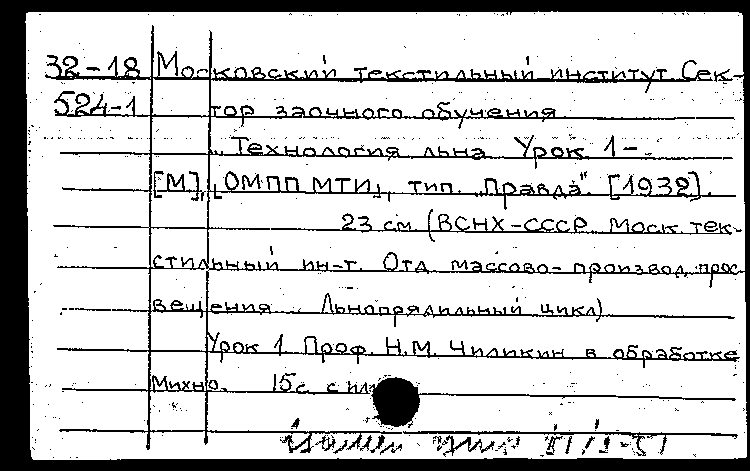 32-18 Московский текстильный институт Сек-
524-1 тор заочного обучения
.. Технология льна Урок 1-.
[М], „ОМПП МТИ„, тип. „Правда". [1932].
23 см (ВСНХ-СССР. Моск. тек-
стильный ин-т. Отд массово-производ. прос
вещения .. Льнопрядильный цикл)
Урок 1. Проф. Н.М. Чиликин в обработке
Михно. 15с. с